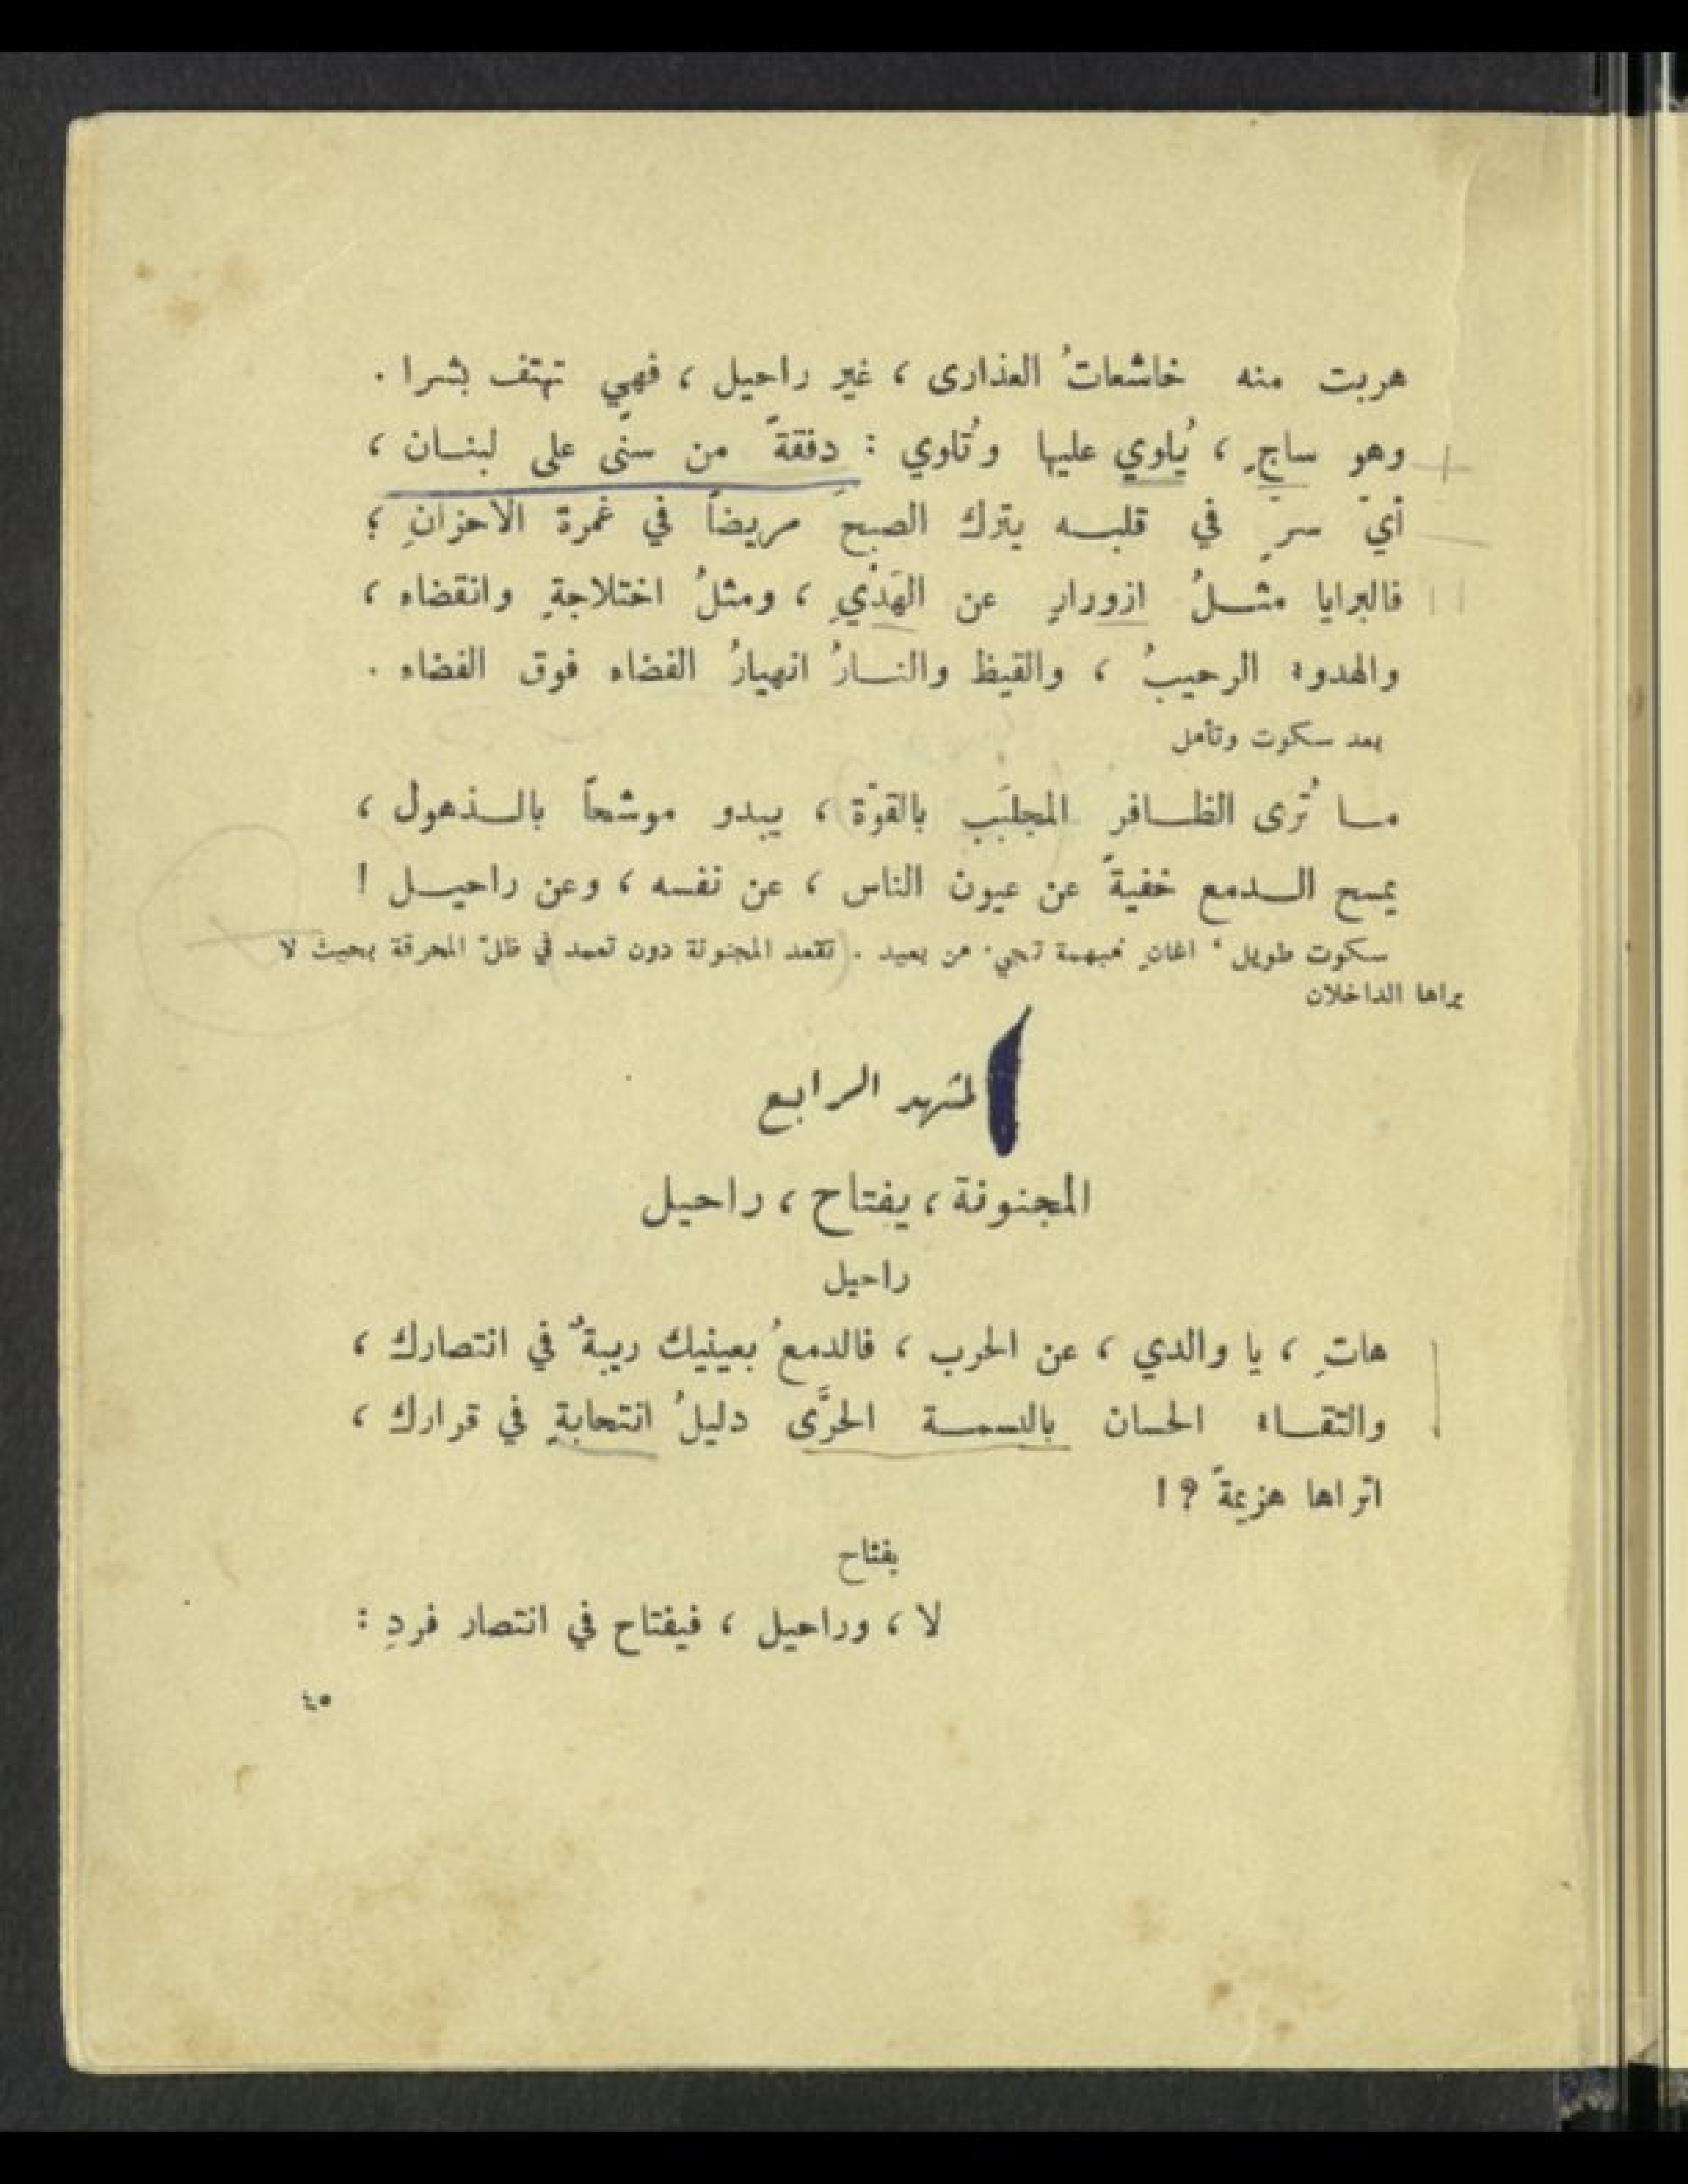 هربت منه خاشعاتُ العذارى ، غير راحيل ، فهي تهتف بشرا .
وهو ساجٍ ، يُلوي عليها وتُلوي : دفقةً من سنًى على لبنــان ،
أيّ سرٍّ في قلبــه يترك الصبحَ مريضاً في غمرة الاحزانِ ؟
فالبرايا مثــلُ ازورارٍ عن الهَدْيِ ، ومثلُ اختلاجةٍ وانقضاء ،
والهدوء الرحيبُ ، والقيظ والنــارُ انهيارُ الفضاء فوق الفضاء .
بعد سكوت وتأمل
مــا تُرى الظــافر المجلبَب بالقوّة ، يبدو موشحاً بالــذهول ،
يمسح الــدمع خفيةً عن عيون الناس ، عن نفسه ، وعن راحيــل !
سكوت طويل ، اغانٍ مُبهمة تجيء من بعيد . (تقعد المجنونة دون تعمد في ظلّ المحرقة بحيث لا
يراها الداخلان
المشهد الرابع
المجنونة ، يفتاح ، راحيل
راحيل
هاتِ ، يا والدي ، عن الحرب ، فالدمعُ بعينيك ريبةٌ في انتصارك ،
والتقــاء الحسان بالبسمــة الحرَّى دليلُ انتحابةٍ في قرارك ،
اتراها هزيمةً ?!
يفتاح
لا ، وراحيل ، فيفتاح في انتصار فردِ :
٤٥